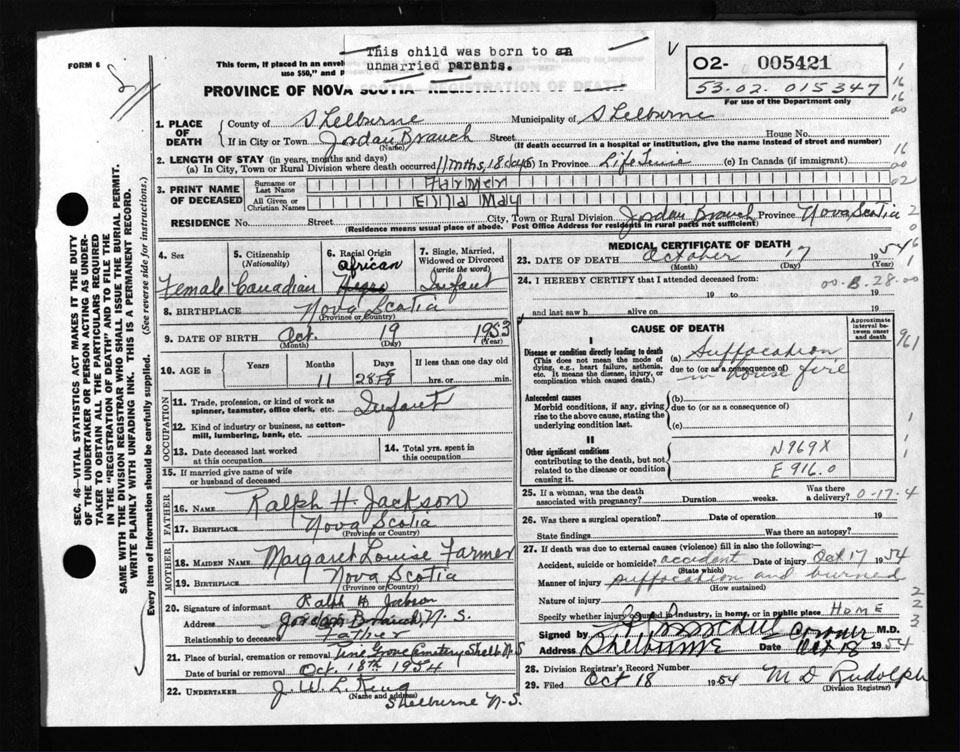 FORM 6
This form, if placed in an envel
use $50," and p
This child was born to an
unmarried parents.
O2- 005421
53.02.015347
For use of the Department only
PROVINCE OF NOVA SCOTIA—REGISTRATION OF DEATH
1. PLACE OF DEATH
County of Shelburne Municipality of Shelburne
If in City or Town Jordan Branch Street House No.
(Name) (If death occurred in a hospital or institution, give the name instead of street and number)
2. LENGTH OF STAY (in years, months and days)
(a) In City, Town or Rural Division where death occurred 11 mths, 18 days (b) In Province Life Time (c) In Canada (if immigrant)
3. PRINT NAME OF DECEASED
Surname or Last Name Farmer
All Given or Christian Names Ella May
RESIDENCE No. Street City, Town or Rural Division Jordan Branch Province Nova Scotia
(Residence means usual place of abode. Post Office Address for residents in rural parts not sufficient)
4. Sex
Female
5. Citizenship (Nationality)
Canadian
6. Racial Origin
African
7. Single, Married, Widowed or Divorced (write the word)
Infant
8. BIRTHPLACE Nova Scotia
(Province or Country)
9. DATE OF BIRTH Oct. 19 1953
(Month) (Day) (Year)
10. AGE in Years Months Days If less than one day old
11 28 hrs. or min.
OCCUPATION
11. Trade, profession, or kind of work as spinner, teamster, office clerk, etc. Infant
12. Kind of industry or business, as cotton-mill, lumbering, bank, etc.
13. Date deceased last worked at this occupation
14. Total yrs. spent in this occupation
15. If married give name of wife or husband of deceased
FATHER
16. NAME Ralph H. Jackson
17. BIRTHPLACE Nova Scotia
(Province or Country)
MOTHER
18. MAIDEN NAME Margaret Louise Farmer
19. BIRTHPLACE Nova Scotia
(Province or Country)
20. Signature of informant Ralph H Jackson
Address Jordan Branch, N. S.
Relationship to deceased Father
21. Place of burial, cremation or removal Pine Grove Cemetery Shelb N.S
Date of burial or removal Oct. 18th 1954
22. UNDERTAKER J. W. L. King
(Name and address)
Shelburne N.S.
MEDICAL CERTIFICATE OF DEATH
23. DATE OF DEATH October 17 1954
(Month) (Day) (Year)
24. I HEREBY CERTIFY that I attended deceased from:
00-B-28-00
19 to 19
and last saw h alive on 19
CAUSE OF DEATH
Approximate interval between onset and death
I
Disease or condition directly leading to death
(This does not mean the mode of dying, e.g., heart failure, asthenia, etc. It means the disease, injury, or complication which caused death.)
(a) Suffocation
due to (or as a consequence of) in house fire
Antecedent causes
Morbid conditions, if any, giving rise to the above cause, stating the underlying condition last.
(b)
due to (or as a consequence of)
(c)
II
Other significant conditions contributing to the death, but not related to the disease or condition causing it.
N969X
E916.0
961
25. If a woman, was the death associated with pregnancy? Duration weeks. Was there a delivery? 0-17-4
26. Was there a surgical operation? Date of operation 19
State findings Was there an autopsy?
27. If death was due to external causes (violence) fill in also the following—
Accident, suicide or homicide? accident Date of injury Oct 17 1954
(State which)
Manner of injury suffocation and burned
(How sustained)
Nature of injury
Specify whether injury occurred in industry, in home, or in public place HOME
Signed by Coroner M.D.
Address Shelburne Date Oct 18 1954
28. Division Registrar's Record Number
29. Filed Oct 18 1954 M D Rudolph
(Division Registrar)
SEC. 46—VITAL STATISTICS ACT MAKES IT THE DUTY OF THE UNDERTAKER OR PERSON ACTING AS UNDERTAKER TO OBTAIN ALL THE PARTICULARS REQUIRED IN THE "REGISTRATION OF DEATH" AND TO FILE THE SAME WITH THE DIVISION REGISTRAR WHO SHALL ISSUE THE BURIAL PERMIT. WRITE PLAINLY WITH UNFADING INK. THIS IS A PERMANENT RECORD.
Every item of information should be carefully supplied. (See reverse side for instructions.)